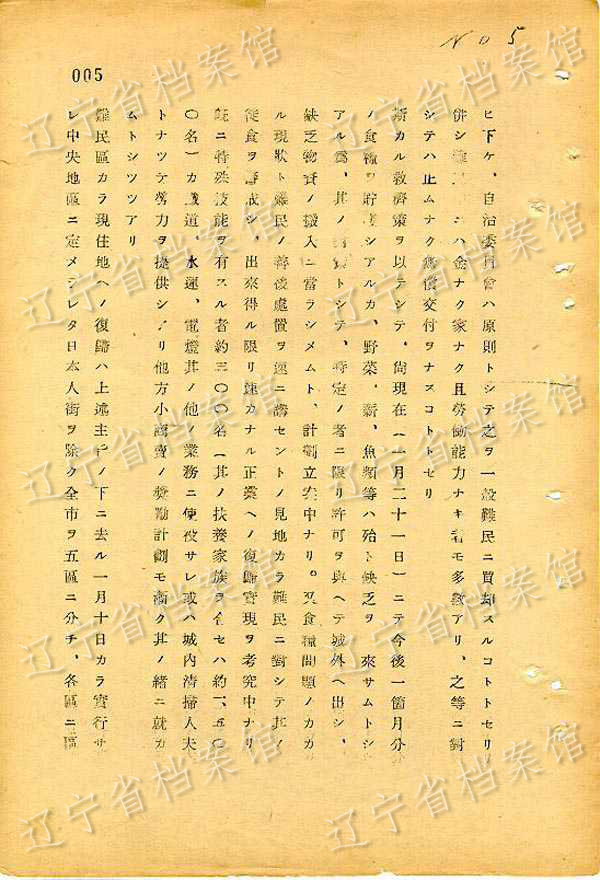 NO 5
005
ヒ下ケ、自治委員會ハ原則トシテ之ヲ一般難民ニ買却スルコトトセリ
併シ難 ニハ金ナク家ナク且勞働能力ナキ者モ多數アリ、之等ニ對
シテハ止ムナク無償交付ヲナスコトトセリ
斯カル救濟策ヲ以テシテ、尙現在(一月二十一日)ニテ今後一箇月分
ノ食糧ヲ貯 シアルカ、野菜、薪、魚類等ハ殆ト缺乏ヲ 來サムトシ
アル爲、其ノ トシテ、特定ノ者ニ限リ許可ヲ與ヘテ城外ヘ出シ、
缺乏物資ノ搬入ニ當ラシメムト、計劃立案中ナリ。又食糧問題ノカカ
ル現狀ト難民ノ善後處置ヲ速ニ講セントノ見地カラ難民ニ對シテ其ノ
徒食ヲ 戒シ、出來得ル限リ速カナル正業ヘノ復歸實現ヲ考究中ナリ
既ニ特殊技能ヲ有スル者約三〇〇名(其ノ扶養家族ヲ合セハ約一、五〇
〇名)カ鐵道、水運、電燈其ノ他ノ業務ニ使役サレ或ハ城内淸掃人夫
トナツテ勞力ヲ提供シアリ他方小賣ノ奬勵計劃モ漸ク其ノ緖ニ就カ
ムトシツツアリ
難民區カラ現住地ヘノ復歸ハ上述主 ノ下ニ去ル一月十日カラ實行サ
レ中央地區ニ定メラレタ日本人街ヲ除ク全市ヲ五區ニ分チ、各區ニ區
辽宁省档案馆
辽宁省档案馆
辽宁省档案馆
辽宁省档案馆
辽宁省档案馆
辽宁省档案馆
辽宁省档案馆
辽宁省档案馆
辽宁省档案馆
辽宁省档案馆